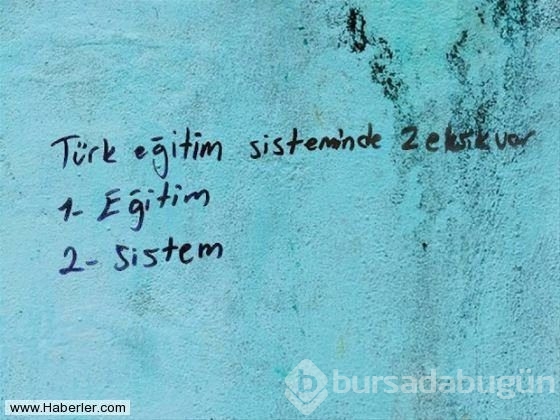 Türk eğitim sisteminde 2 eksik var
1- Eğitim
2- Sistem
bursadabugün
www.Haberler.com